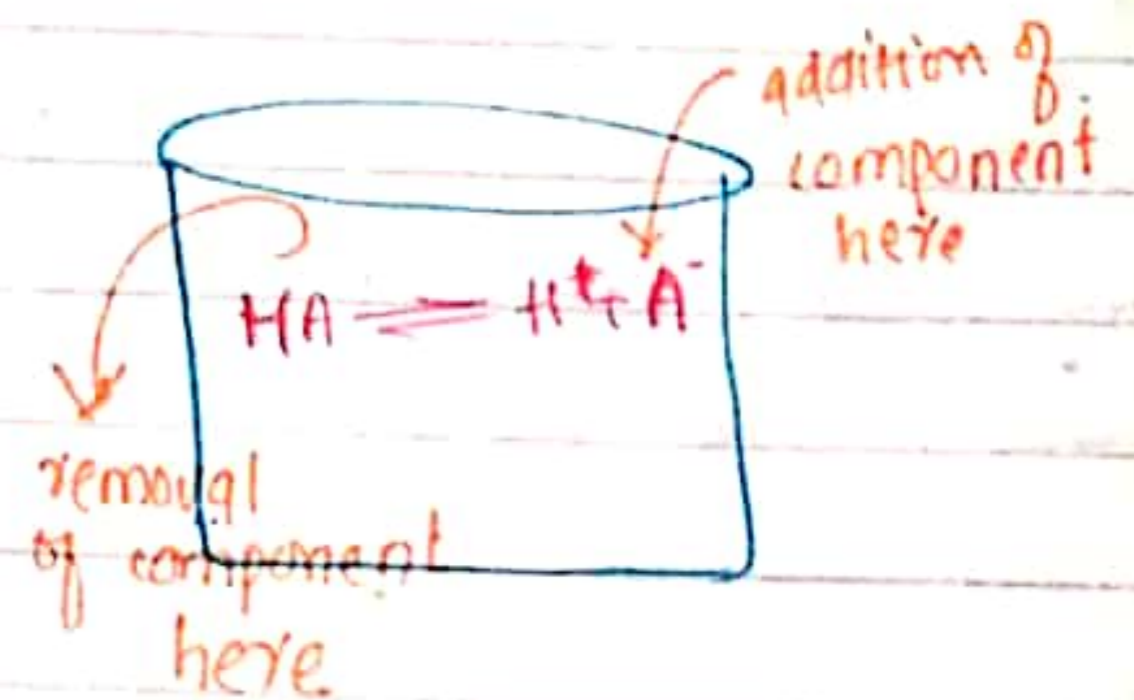 addition of
component
here
HA ⇌ H⁺ + A⁻
removal
of component
here